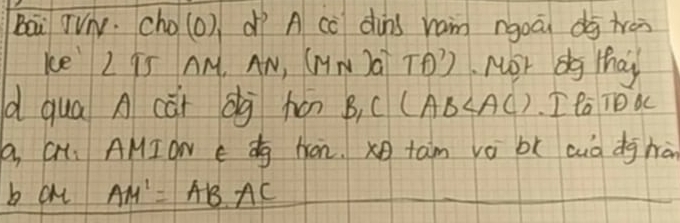 Bài TVN. Cho (O), đ' A cố định nằm ngoài đg tròn
kẻ 2 TT AM, AN, (MN là TĐ'). Một đg thẳng
d qua A cắt đg tròn B, C (AB<AC). I là TĐ BC
a, CM: AMION ∈ đg tròn. XĐ tâm và bk của đg tròn
b CM AM² = AB.AC